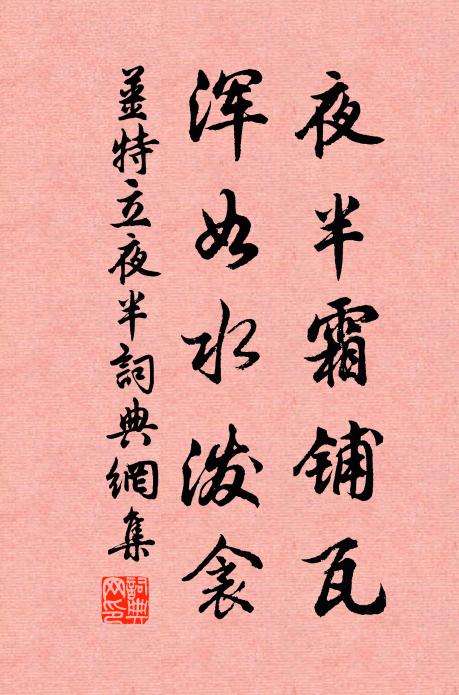 夜半霜铺瓦
浑如水泼衾
薑特立夜半詞典網集
詞典
网印